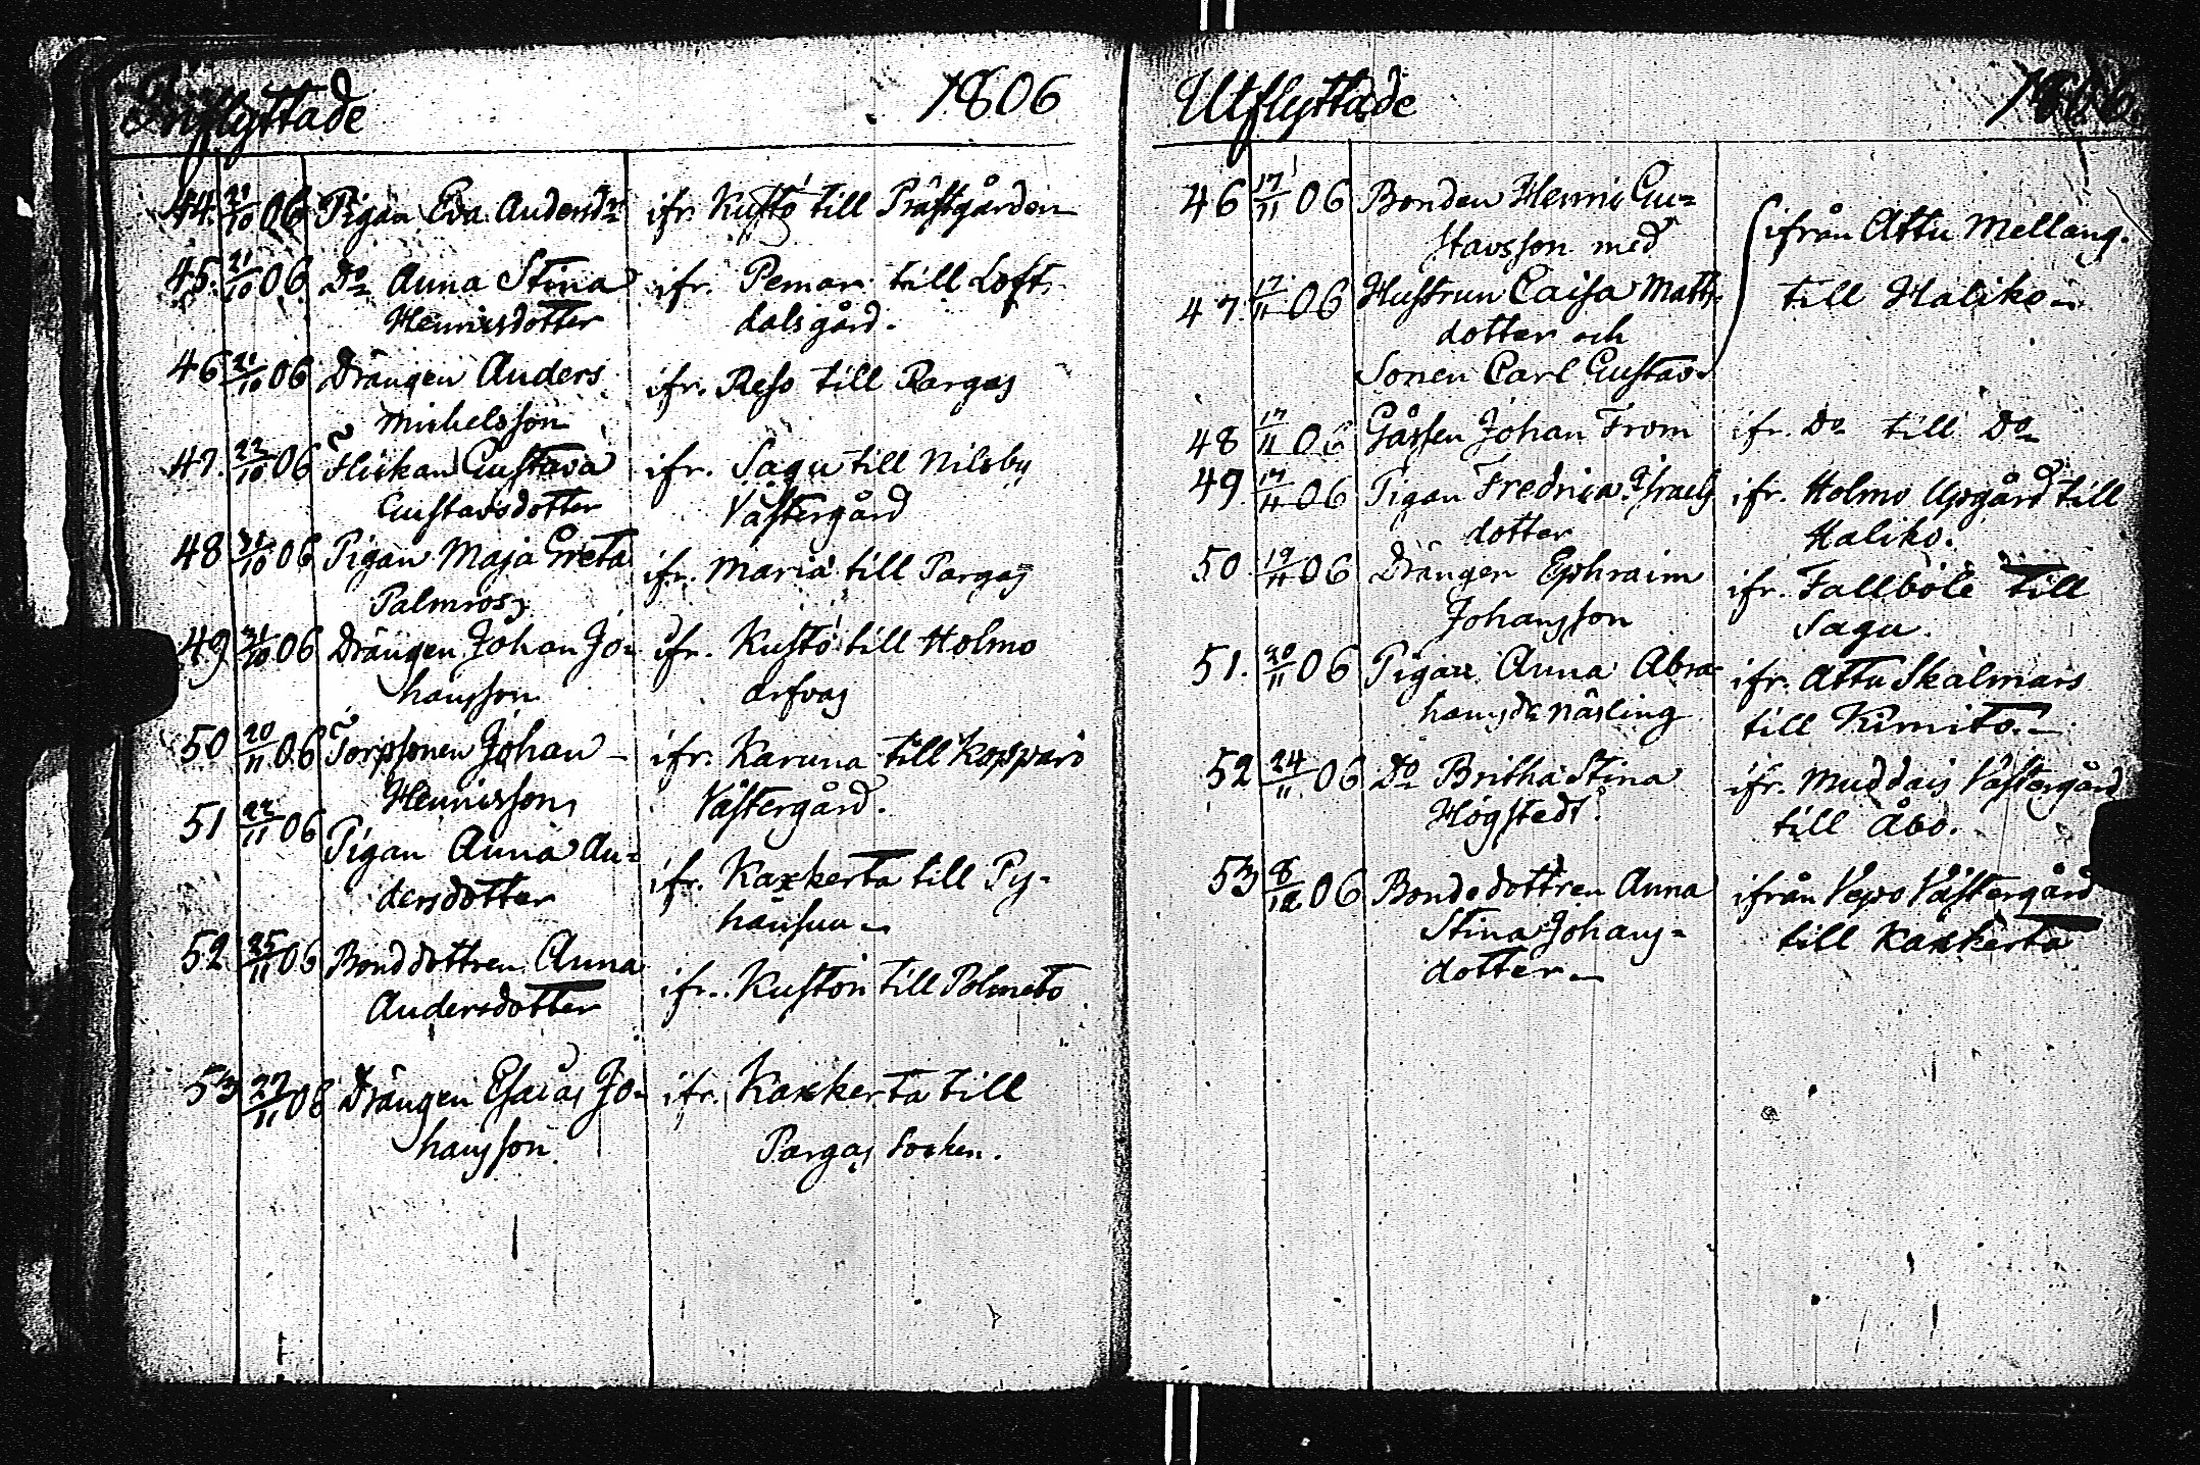 Inflyttade 1806
44. 21/10 06 Pigan Eva Andersdr ifr. Kustö till Prästgården
45. 21/10 06 Do Anna Stina ifr. Pemar till Lofts-
Henricsdotter dalsgård.
46 21/10 06 Drängen Anders ifr. Reso till Pargas
Michelsson
47. 22/10 06 Flickan Gustava ifr. Sagu till Nilsby
Gustavsdotter Västergård
48 31/10 06 Pigan Maja Greta ifr. Maria till Pargas
Palmros
49 31/10 06 Drängen Johan Jo- ifr. Kustö till Holmo
hansson arfvas
50 20/11 06 Torpsonen Johan ifr. Karuna till Kopparö
Henricsson Västergård.
51 22/11 06 Pigan Anna An= ifr. Kaxkerta till Py-
dersdotter
52 25/11 06 Bonddottren Anna ifr. Kustön till
Andersdotter
53 27/11 08 Drängen Esaias Jo- ifr. Kaxkerta till
hansson Pargas Socken.
Utflyttade 1806
46 17/11 06 Bonden Henric Gu= ifrån Attu Mellang.
stavsson med
47. 17/11 06 Hustrun Caisa Matts till Haliko
dotter och
Sonen Carl Gustav
48 17/11 06 Gåssen Johan From ifr. Do till Do
49. 17/11 06 Pigan Fredrica Israels ifr. Holmo Upgård till
dotter Haliko.
50. 19/11 06 Drängen Ephraim ifr. Fallböle till
Johansson Sagu.
51. 20/11 06 Pigan Anna Abra- ifr. Attu Skälmars
hamsdr Näsling till Kimito.
52 24/11 06 Do Britha Stina ifr. Muddais Västergård
Högstedt. till Åbo.
53 8/12 06 Bondedottren Anna ifrån Vepo Västergård
Stina Johans- till Kaxkerta
dotter